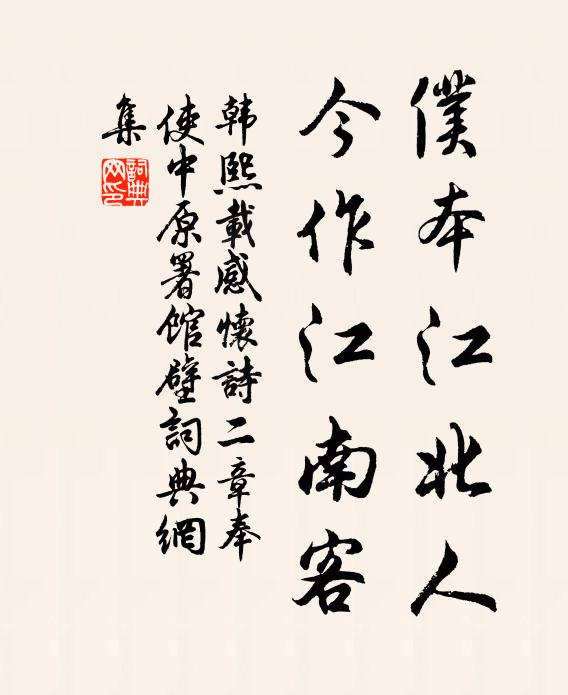 僕本江北人
今作江南客
韩熙載感懷詩二章奉
使中原署館壁詞典網
集
詞典
网印